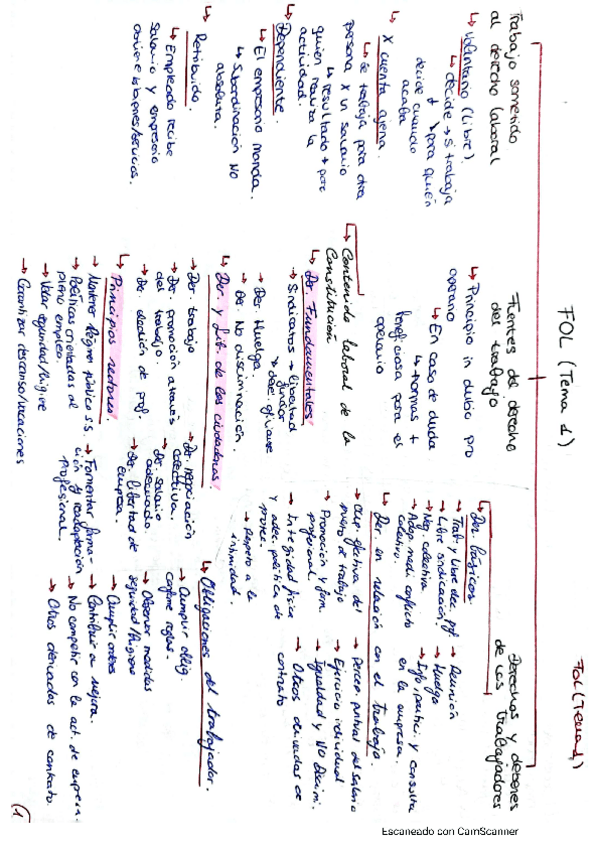 FOL (Tema 1)
FOL (Tema 1)
Trabajo sometido
al derecho laboral
↳ Voluntario (libre).
↳ decide → si trabaja
↓ ↘ para quién
decide cuando
acaba
↳ X cuenta ajena.
↳ se trabaja para otra
persona x un salario
↳ resultado + para
quien realiza la
actividad.
↳ Dependiente.
↳ El empresario manda.
↳ Subordinación NO
absoluta.
↳ Retribuido.
↳ Empleado recibe
salario y empresario
obtiene bienes/servicios.
Fuentes del derecho
del trabajo
↳ Principio in dubio pro
operario
↳ En caso de duda
↳ normas +
beneficiosa para el
operario
↳ Contenido laboral de la
Constitución
↳ Der. Fundamentales
→ Sindicatos → libertad
fundar
→ der. afiliarse
→ Der. Huelga.
→ Der. No discriminación.
↳ Der. y Lib. de los ciudadanos
→ Der. trabajo
→ Der. promoción a través
del trabajo.
→ Der. elección de prof.
→ Der. negociación
colectiva.
→ Der. salario
adecuado
→ Der. libertad de
empresa.
↳ Principios rectores
→ Mantener régimen público S.S.
→ Políticas orientadas al
pleno empleo.
→ Velar seguridad/higiene
→ Garantizar descanso/vacaciones
→ Fomentar forma-
ción y readaptación
profesional.
Derechos y deberes
de los trabajadores
↳ Der. básicos
→ Trab. y libre elec. prof.
→ Libre sindicación.
→ Neg. colectiva
→ Adop. medi conflicto
colectivo.
→ Reunión
→ Huelga
→ Info, partici. y consulta
en la empresa.
↳ Der. en relación con el trabajo
→ Ocup. efectiva del
puesto de trabajo
→ Promoción y form.
profesional.
→ Integridad física
y adec. política de
preve.
→ Respeto a la
intimidad.
→ Percep. puntual del salario
→ Ejercicio individual
→ Igualdad y NO discrimi.
→ Otros derivados de
contrato
↳ Obligaciones del trabajador.
→ Cumplir oblig
conforme reglas.
→ Observar medidas
seguridad/higiene
→ Cumplir órdenes
→ Contribuir a mejora.
→ No competir con la act. de empresa.
→ Otros derivados de contrato.
1
Escaneado con CamScanner